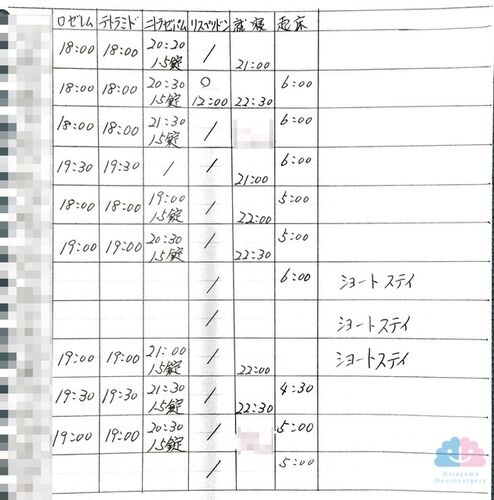 ロゼレム テトラミド ニトラゼパム リスペリドン 就寝 起床
18:00 18:00 20:20 /
1.5錠 21:00
18:00 18:00 20:30 ○ 6:00
1.5錠 12:00 22:30
18:00 18:00 21:30 / 6:00
1.5錠
19:30 19:30 / / 6:00
21:00
18:00 18:00 19:00 / 5:00
1.5錠 22:00
19:00 19:00 20:30 / 5:00
1.5錠 22:30
/ 6:00 ショートステイ
/ ショートステイ
19:00 19:00 21:00 / ショートステイ
1.5錠 22:00
19:30 19:30 21:30 / 4:30
1.5錠 22:30
19:00 19:00 20:30 / 5:00
1.5錠
/ 5:00
Hirayama
Neurosurgery